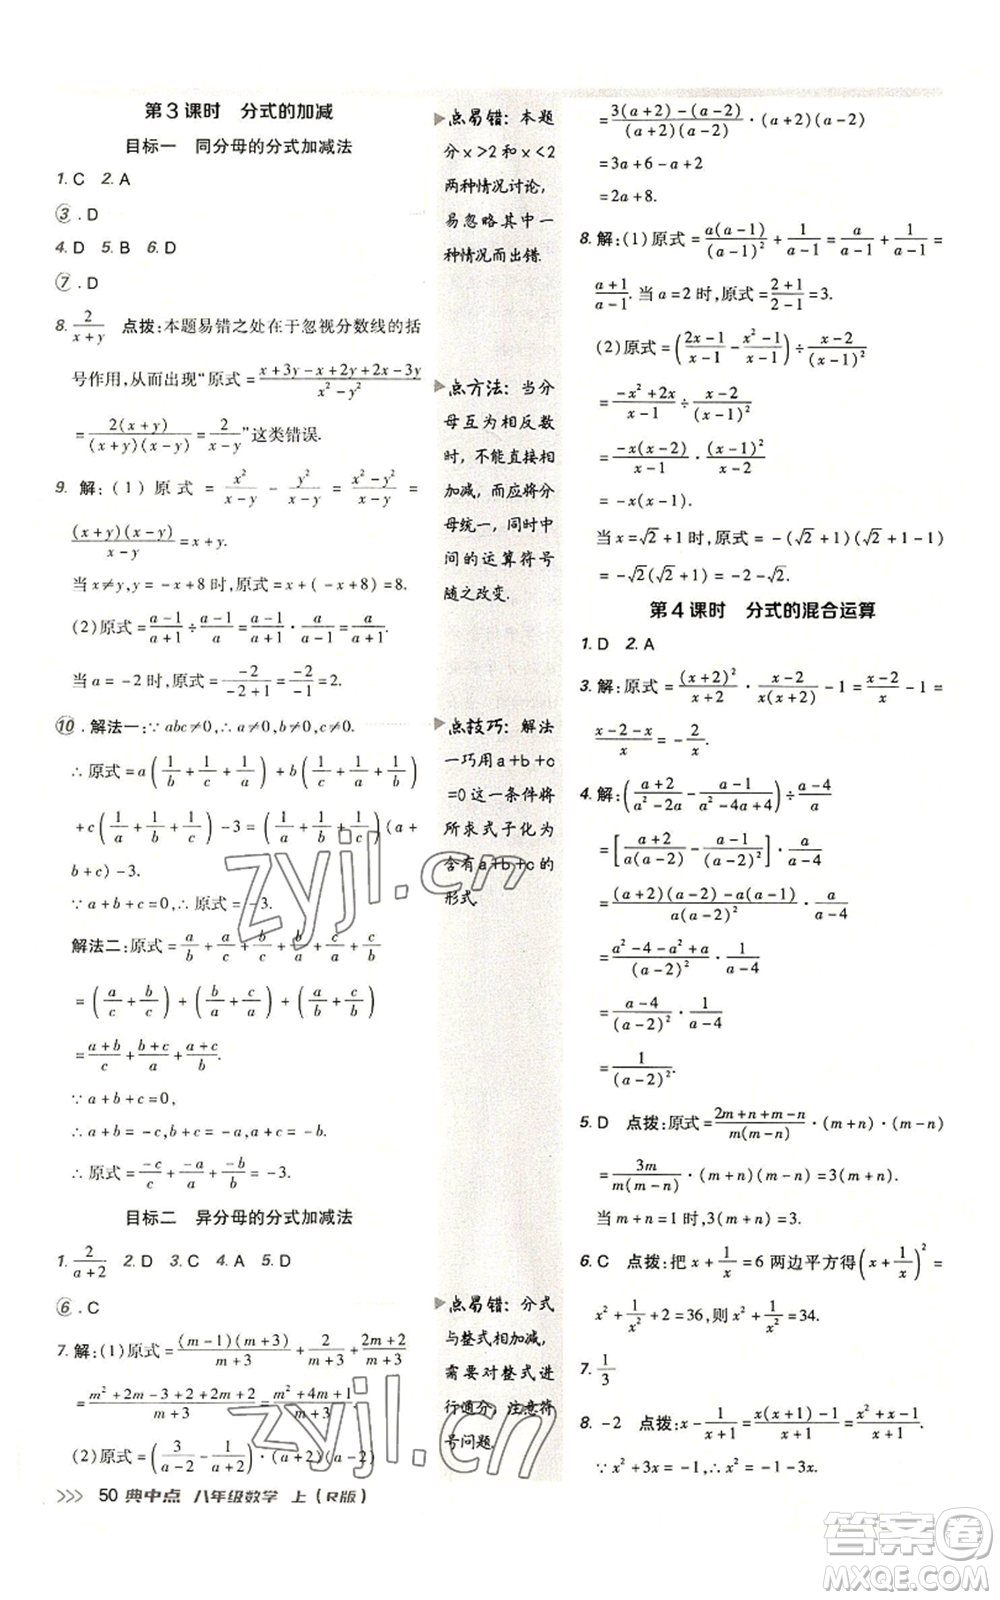 第3课时 分式的加减
目标一 同分母的分式加减法
1. C 2. A
③. D
4. D 5. B 6. D
⑦. D
8. 2/(x+y) 点拨:本题易错之处在于忽视分数线的括
号作用,从而出现“原式=(x+3y-x+2y+2x-3y)/(x²-y²)
=2(x+y)/((x+y)(x-y))=2/(x-y)”这类错误.
9. 解:(1)原式=x²/(x-y)-y²/(x-y)=(x²-y²)/(x-y)=
(x+y)(x-y)/(x-y)=x+y.
当x≠y,y=-x+8时,原式=x+(-x+8)=8.
(2)原式=(a-1)/(a+1)÷(a-1)/a=(a-1)/(a+1)·a/(a-1)=a/(a+1).
当a=-2时,原式=-2/(-2+1)=-2/-1=2.
⑩. 解法一:∵abc≠0,∴a≠0,b≠0,c≠0.
∴原式=a(1/b+1/c+1/a)+b(1/a+1/c+1/b)
+c(1/a+1/b+1/c)-3=(1/a+1/b+1/c)(a+
b+c)-3.
∵a+b+c=0,∴原式=-3.
解法二:原式=a/b+a/c+b/c+b/a+c/a+c/b
=(a/c+b/c)+(b/a+c/a)+(a/b+c/b)
=(a+b)/c+(b+c)/a+(a+c)/b.
∵a+b+c=0,
∴a+b=-c,b+c=-a,a+c=-b.
∴原式=-c/c+-a/a+-b/b=-3.
目标二 异分母的分式加减法
1. 2/(a+2) 2. D 3. C 4. A 5. D
⑥. C
7. 解:(1)原式=(m-1)(m+3)/(m+3)+2/(m+3)+(2m+2)/(m+3)
=(m²+2m-3+2+2m+2)/(m+3)=(m²+4m+1)/(m+3).
(2)原式=(3/(a-2)-1/(a+2))·(a+2)(a-2)
>>> 50 典中点 八年级数学 上(R版)
点易错:本题
分x>2和x<2
两种情况讨论,
易忽略其中一
种情况而出错.
点方法:当分
母互为相反数
时,不能直接相
加减,而应将分
母统一,同时中
间的运算符号
随之改变.
点技巧:解法
一巧用a+b+c
=0这一条件将
所求式子化为
含有a+b+c的
形式.
点易错:分式
与整式相加减,
需要对整式进
行通分,注意符
号问题.
=(3(a+2)-(a-2))/((a+2)(a-2))·(a+2)(a-2)
=3a+6-a+2
=2a+8.
8. 解:(1)原式=a(a-1)/(a-1)²+1/(a-1)=a/(a-1)+1/(a-1)=
(a+1)/(a-1).当a=2时,原式=(2+1)/(2-1)=3.
(2)原式=((2x-1)/(x-1)-(x²-1)/(x-1))÷(x-2)/(x-1)²
=(-x²+2x)/(x-1)÷(x-2)/(x-1)²
=-x(x-2)/(x-1)·(x-1)²/(x-2)
=-x(x-1).
当x=√2+1时,原式=-(√2+1)(√2+1-1)
=-√2(√2+1)=-2-√2.
第4课时 分式的混合运算
1. D 2. A
3. 解:原式=(x+2)²/(x+2)·(x-2)/(x(x+2))-1=(x-2)/x-1=
(x-2-x)/x=-2/x.
4. 解:((a+2)/(a²-2a)-(a-1)/(a²-4a+4))÷(a-4)/a
=[(a+2)/(a(a-2))-(a-1)/(a-2)²]·a/(a-4)
=((a+2)(a-2)-a(a-1))/(a(a-2)²)·a/(a-4)
=(a²-4-a²+a)/(a-2)²·1/(a-4)
=(a-4)/(a-2)²·1/(a-4)
=1/(a-2)².
5. D 点拨:原式=(2m+n+m-n)/(m(m-n))·(m+n)(m-n)
=3m/(m(m-n))·(m+n)(m-n)=3(m+n).
当m+n=1时,3(m+n)=3.
6. C 点拨:把x+1/x=6两边平方得(x+1/x)²=
x²+1/x²+2=36,则x²+1/x²=34.
7. 1/3
8. -2 点拨:x-1/(x+1)=(x(x+1)-1)/(x+1)=(x²+x-1)/(x+1).
∵x²+x-1=0,∴原式=0.
zyjl.cn
zyjl.cn
答案卷
MXQE.COM